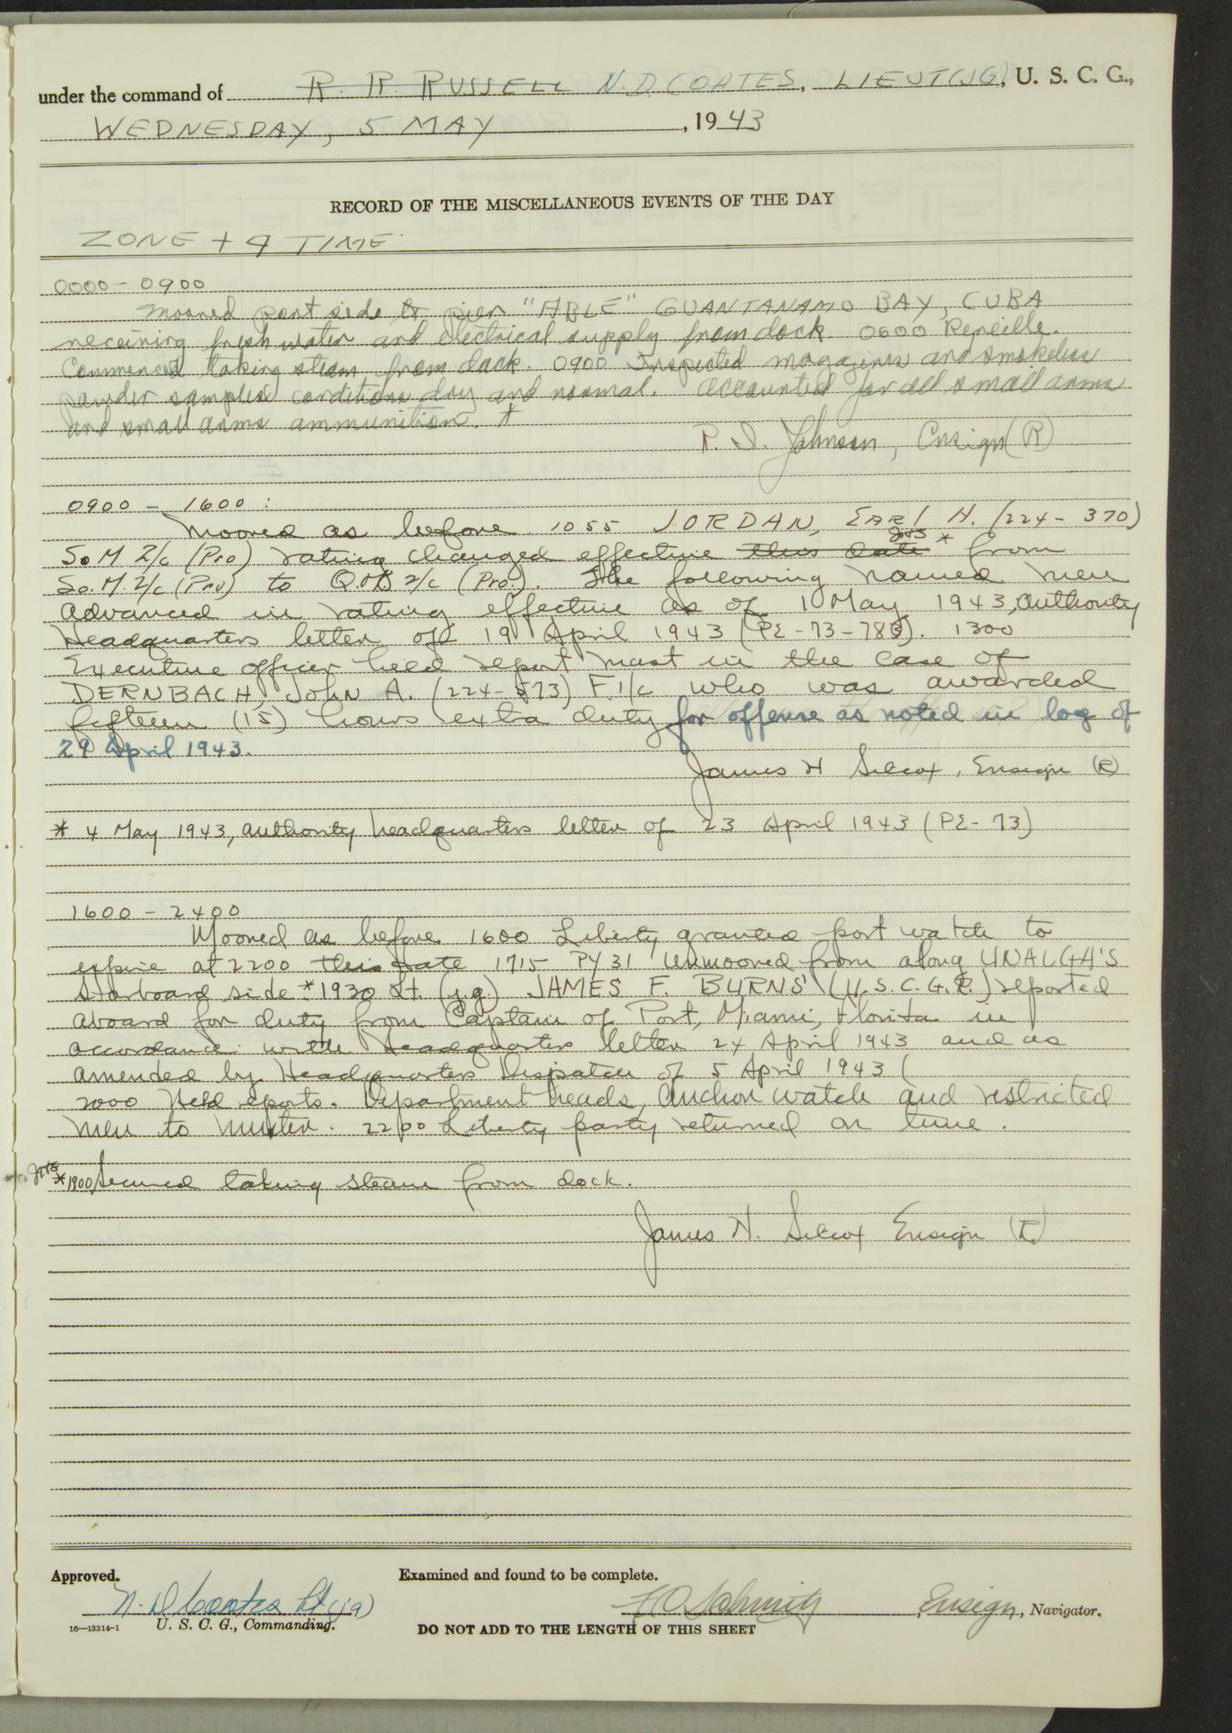 under the command of R. R. RUSSELL N.D. COATES, LIEUT(JG), U. S. C. G.,
WEDNESDAY, 5 MAY, 1943
RECORD OF THE MISCELLANEOUS EVENTS OF THE DAY
ZONE + 4 TIME
0000 - 0900
Moored port side to pier "ABLE" GUANTANAMO BAY, CUBA
receiving fresh water and electrical supply from dock. 0600 Reveille.
Commenced taking steam from dock. 0900 Inspected magazines and smokeless
powder samples conditions dry and normal. Accounted for all small arms
and small arms ammunition. *
P. I. Johnson, Ensign (R)
0900 - 1600 :
Moored as before 1055 JORDAN, EARL H. (224-370)
So M 2/c (Pro) rating changed effective this date * from
So. M 2/c (Pro) to Q.M. 2/c (Pro). The following named men
advanced in rating effective as of 1 May 1943, authority
Headquarters letter of 19 April 1943 (PE-73-783). 1300
Executive officer held report mast in the case of
DERNBACH, JOHN A. (224-573) F 1/c who was awarded
fifteen (15) hours extra duty for offense as noted in log of
29 April 1943.
James H Silcox, Ensign (R)
* 4 May 1943, authority headquarters letter of 23 April 1943 (PE-73)
1600 - 2400
Moored as before 1600 Liberty granted port watch to
expire at 2200 this date 1715 PY31 Unmoored from along UNALGA'S
starboard side * 1930 Lt. (j.g.) JAMES F. BURNS (U.S.C.G.R.) reported
aboard for duty from Captain of Port, Miami, Florida in
accordance with Headquarters letter 24 April 1943 and as
amended by Headquarters Dispatch of 5 April 1943 (
2000 Held reports. Department heads, anchor watch and restricted
men to muster. 2200 Liberty party returned on time.
* 1900 Secured taking steam from dock.
James H. Silcox Ensign (R)
Approved.
Examined and found to be complete.
N. D Coates Lt (jg)
Ensign, Navigator.
16—13314-1
U. S. C. G., Commanding.
DO NOT ADD TO THE LENGTH OF THIS SHEET